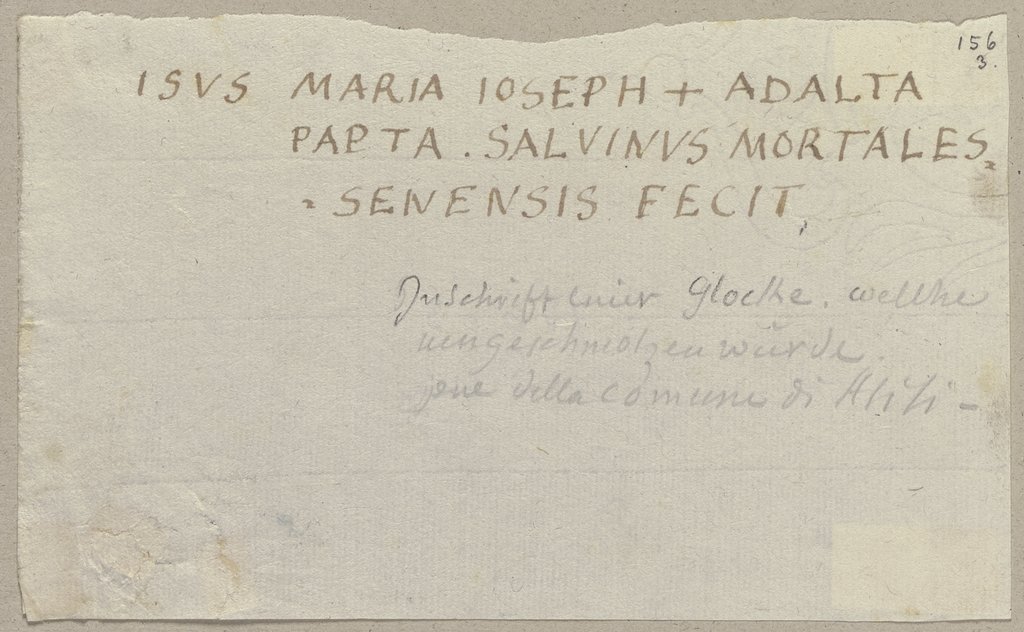 156
3.
ISVS MARIA IOSEPH + ADALTA
PAPTA . SALVINVS MORTALES=
= SENENSIS FECIT,
Inschrift einer Glocke. wellhe
umgeschmolzen wurde.
jene della comune di Aſiſi -